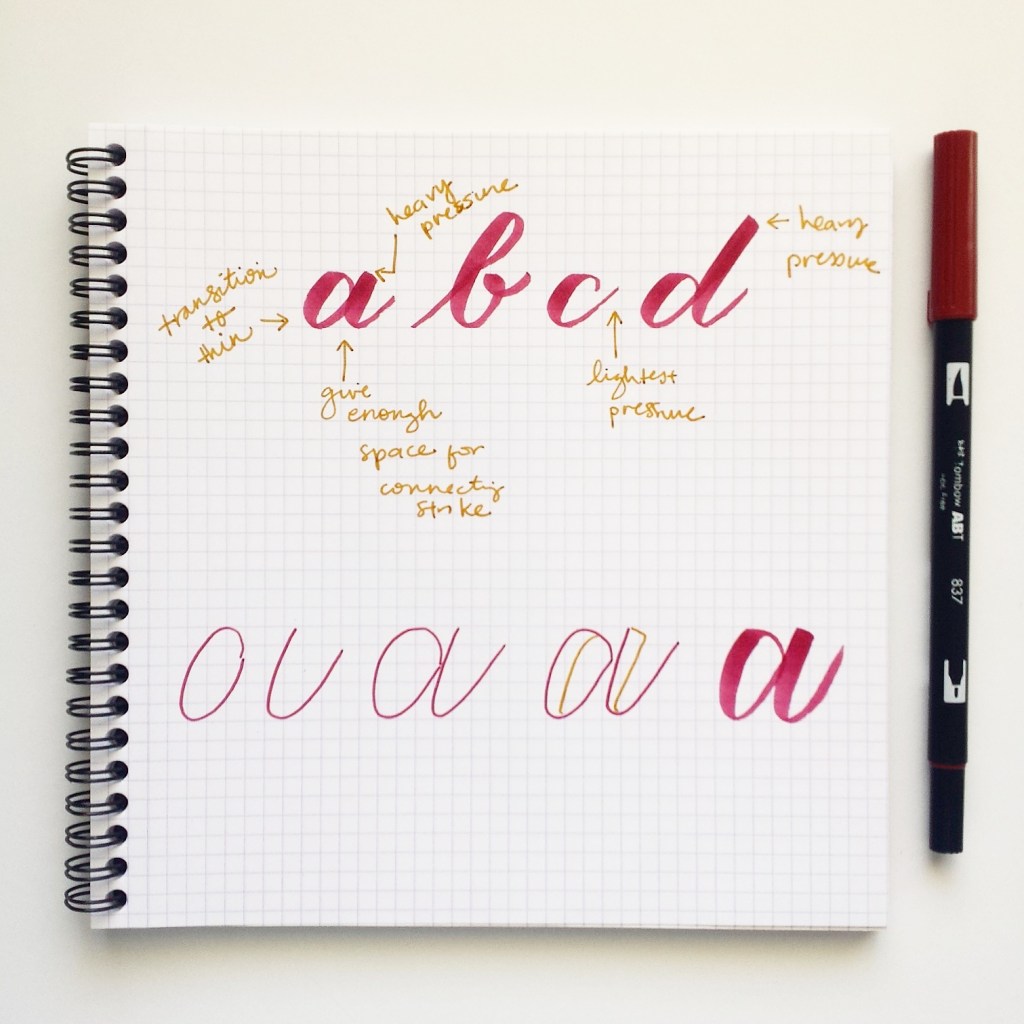 heavy
pressure
a b c d
← heavy
pressure
transition
to
thin →
give
enough
space for
connecting
stroke
lightest
pressure
o ι a a a
Tombow ABT
837